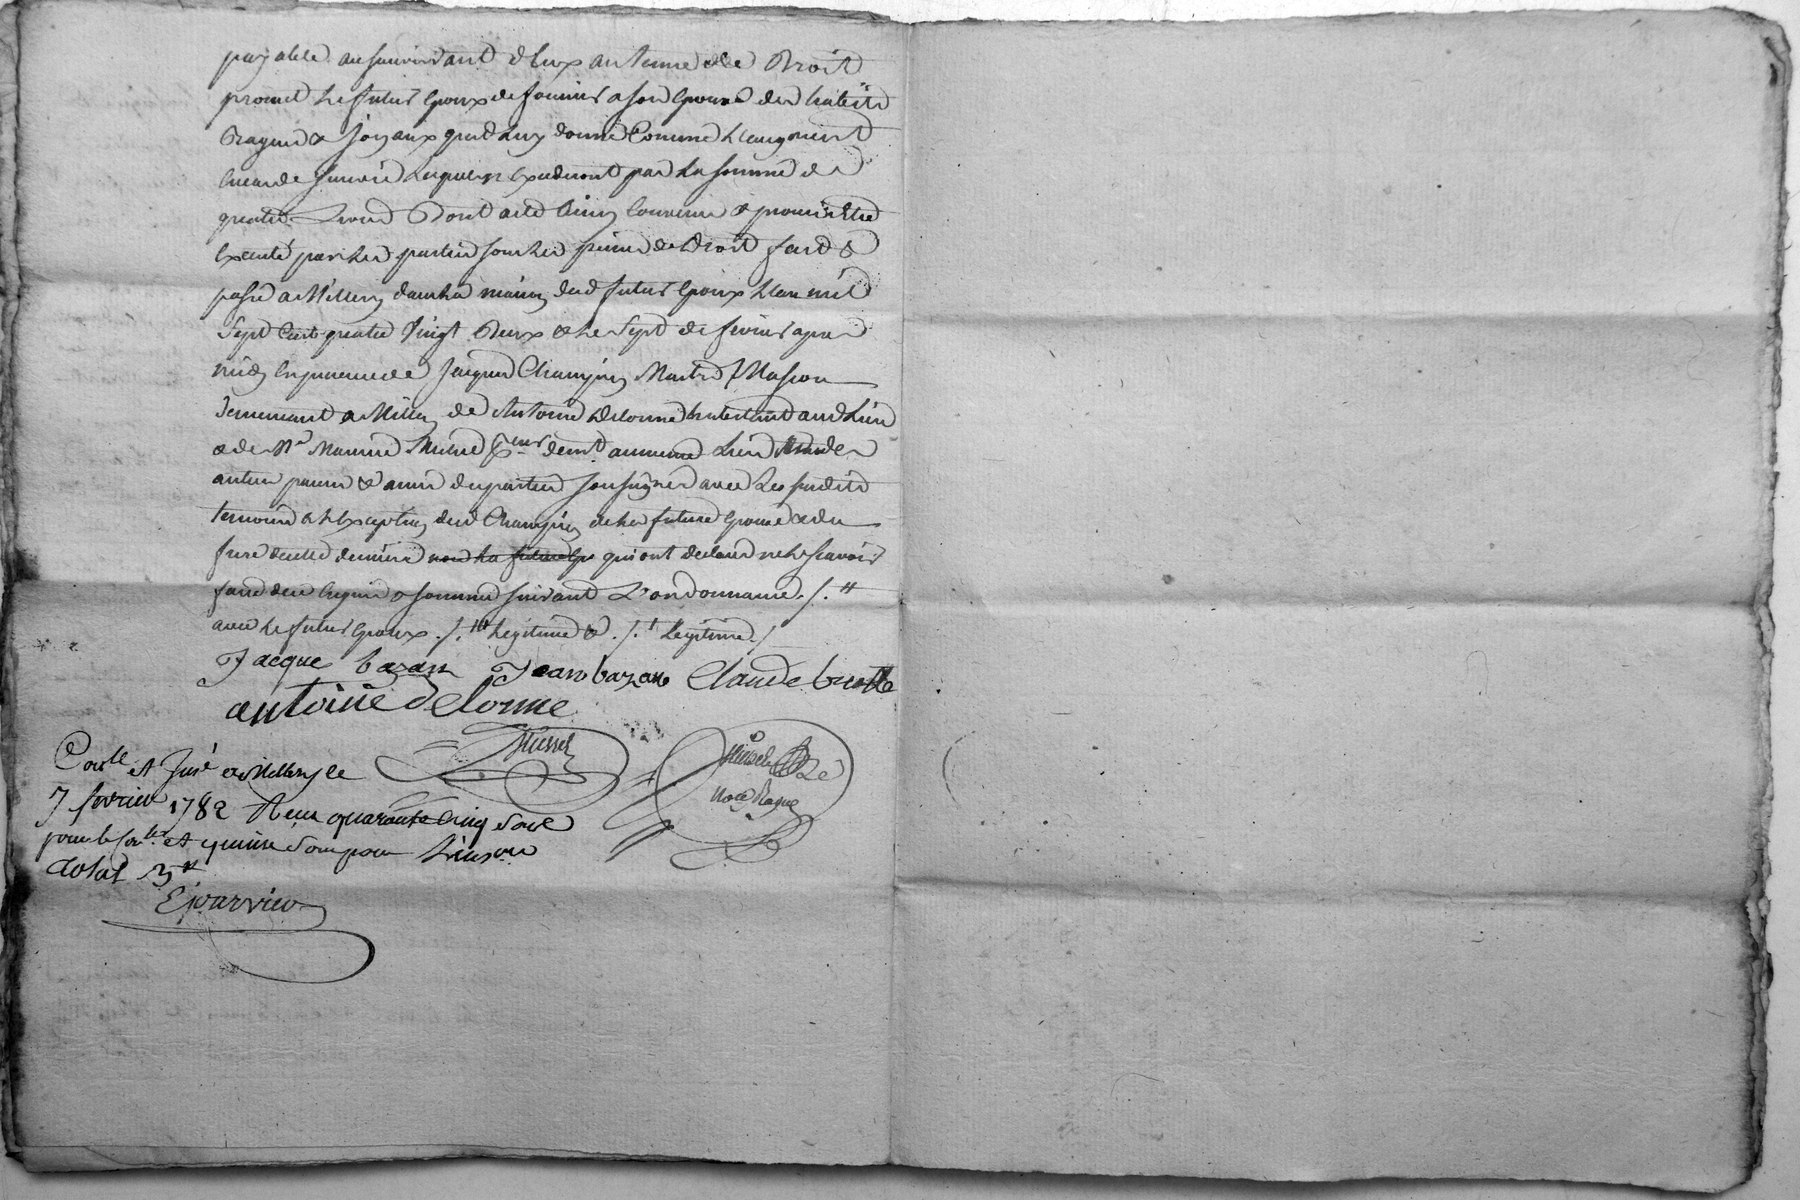 payable au survivant d'eux au terme de Droit
promet le futur Epoux de fournir a son Epouse des habits
Bagues & joyaux qu'il luy donne comme l'augment
en cas de survie lesquels n'excederont pas la somme de
quatre Livres Dont acte Ainsy convenu & promis Etre
Executé par les parties sous les peines de Droit fait &
passé a Millery dans la maison dud futur Epoux L'an mil
Sept Cent quatre Vingt Deux & le Sept de fevrier apres
midy En presence de Jacques Champin Maitre Masson
demeurant a Millery de Antoine Delorme habitant aud Lieu
& de Me Maurice demt aumeme Lieu & de
autres parens & amis des parties soussignes avec Les susdits
temoins a l'Exception dud Champin de la future Epouse & du
frere de cette derniere qui ont declaré ne le scavoir
faire de ce Enquis & sommés suivant L'ordonnance ./. "
avec le futur Epoux ./. legitime & ./. Legitime ./
Jacque bazan Jean bazan Claude
antoine delorme
Conlé et Insé a Millery le
7 fevrier 1782 Reçu quarante cinq sols
pour le conle et quinze sous pour
total 3 ₶
Ejourview